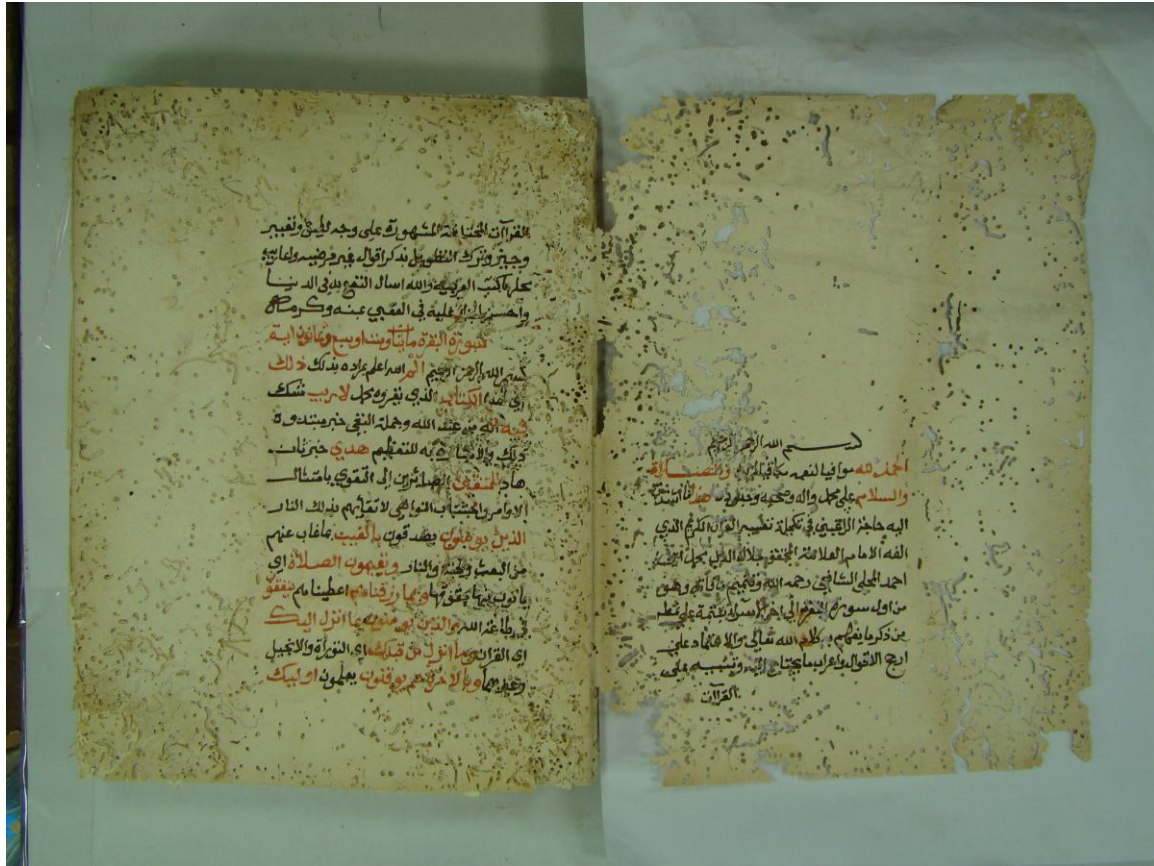 بسم الله الرحمن الرحيم
الحمد لله موافيا لنعمه مكافيا لمزيده والصلاة
والسلام على محمد واله وصحبه وجنوده هذا ما اشتدت
اليه حاجة الراغبين في تكملة تفسير القران الكريم الذي
الفه الامام العلامة المحقق جلال الدين محمد ابن
احمد المحلي الشافعي رحمه الله وتتميم ما فاته وهو
من اول سورة البقرة الى اخر الاسراء بتتمة على نمطه
من ذكر ما يفهم به كلام الله تعالى والاعتماد على
ارجح الاقوال واعراب ما يحتاج اليه وتنبيه على
القراآت
القراآت المختلفة المشهورة على وجه لطيف وتعبير
وجيز وترك التطويل بذكر اقوال غير مرضية واعاريب
محلها كتب العربية والله اسال النفع به في الدنيا
واحسن الجزاء عليه في العقبي بمنه وكرمه
سورة البقرة مايتان وست او سبع وثمانون اية
بسم الله الرحمن الرحيم الم الله اعلم بمراده بذلك ذلك
اي هذا الكتاب الذي يقروه محمد لا ريب شك
فيه انه من عند الله وجملة النفي خبر مبتدوه
ذلك والاشارة به للتعظيم هدي خبر ثان
هاد للمتقين الصائرين الى التقوي بامتثال
الاوامر واجتناب النواهي لاتقائهم بذلك النار
الذين يومنون يصدقون بالغيب بما غاب عنهم
من البعث والجنة والنار ويقيمون الصلاة اي
ياتون بها بحقوقها ومما رزقناهم اعطيناهم ينفقون
في طاعة الله والذين يومنون بما انزل اليك
اي القران وما انزل من قبلك اي التوراة والانجيل
وغيرهما وبالاخرة هم يوقنون يعلمون اوليك